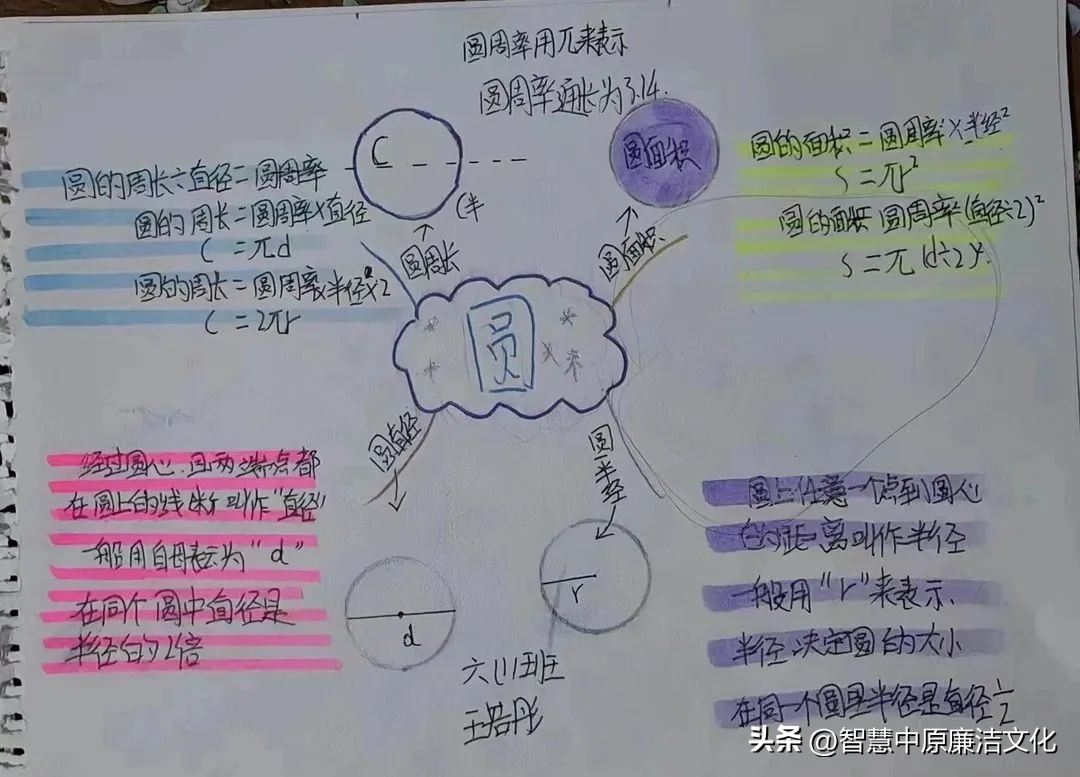 圆周率用π来表示
圆周率通长为3.14.
C
(半
圆的周长÷直径=圆周率
圆的周长=圆周率×直径
C=πd
圆的周长=圆周率×半径×2
C=2πr
圆周长
圆面积
圆面积
圆的面积=圆周率×半径²
S=πr²
圆的面积 圆周率×(直径÷2)²
S=π(d÷2)²
圆
圆直径
圆半径
经过圆心,且两端点都
在圆上的线段叫作"直径"
一般用字母表示为"d"
在同个圆中直径是
半径的2倍
d
r
圆上任意一个点到圆心
的距离叫作半径
一般用"r"来表示.
半径决定圆的大小
在同一个圆里半径是直径1/2
六(1)班
头条 @智慧中原廉洁文化